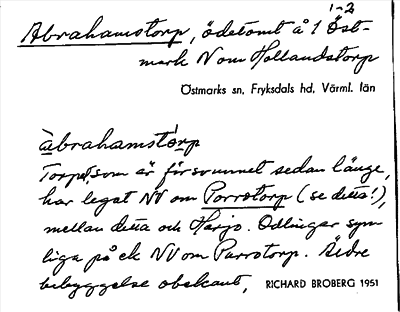 1-2
Abrahamstorp, ödetomt å 1 Öst-
mark N om Hollandstorp
Östmarks sn, Fryksdals hd, Värml. län
àbrahamstòrp
Torpet, som är försvunnet sedan länge,
har legat NV om Porrotorp (se detta!),
mellan detta och Harjo. Odlingar syn-
liga på ek NV om Purrotorp. Äldre
bebyggelse obekant,
RICHARD BROBERG 1951